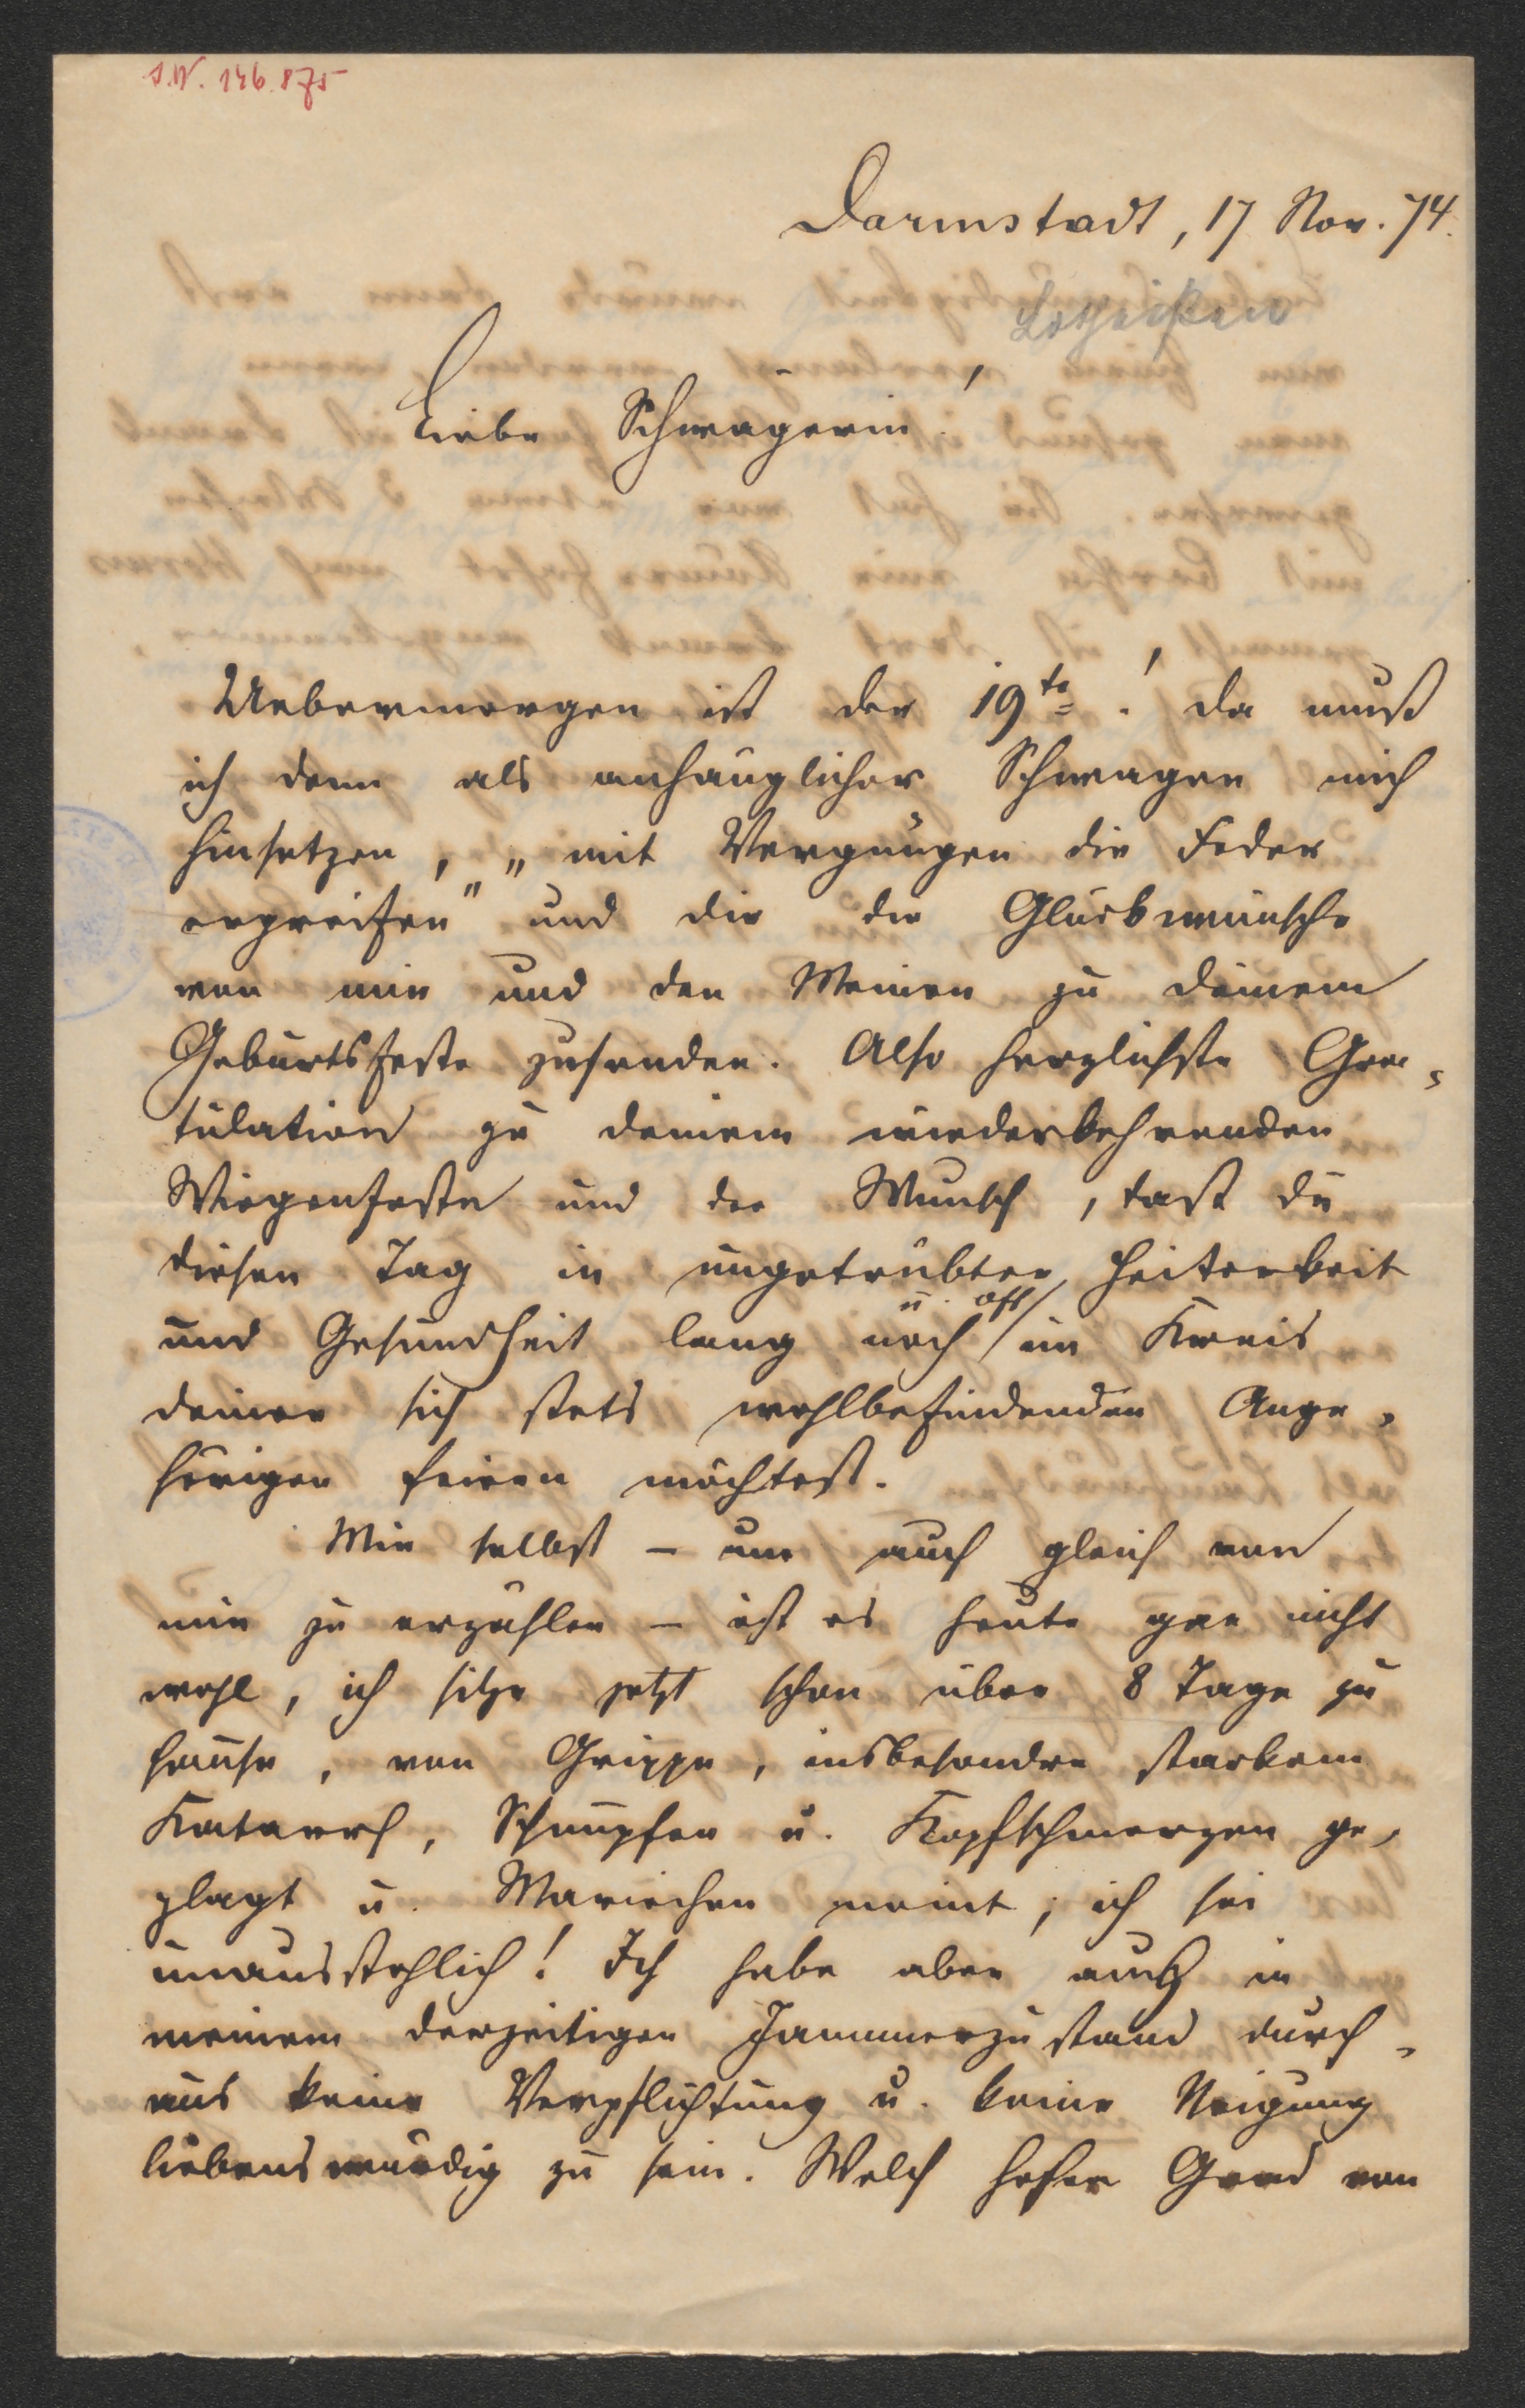 J.N. 146.875
Darmstadt, 17 Nov. 74.
Lotheißen
Liebe Schwägerin!
Uebermorgen ist der 19te! Da muß
ich denn als anhänglicher Schwager mich
hinsetzen, „mit Vergnügen die Feder
ergreifen" und dir die Glückwünsche
von mir und den Meinen zu deinem
Geburtsfeste zusenden. Also herzlichste Gra-
tulation zu deinem wiederkehrenden
Wiegenfeste und der Wunsch, daß du
diesen Tag in ungetrübter Heiterkeit
und Gesundheit lang noch u. oft im Kreis
deiner sich stets wohlbefindenden Ange-
hörigen feiern möchtest.
Mir selbst – um auch gleich von
mir zu erzählen – ist es heute gar nicht
wohl, ich sitze jetzt schon über 8 Tage zu
Hause, von Grippe, insbesondre starkem
Katarrh, Schnupfen u. Kopfschmerzen ge-
plagt u. Mariechen meint, ich sei
unausstehlich! Ich habe aber auch in
meinem derzeitigen Jammerzustand durch-
aus keine Verpflichtung u. keine Neigung
liebenswürdig zu sein. Welch hoher Grad von